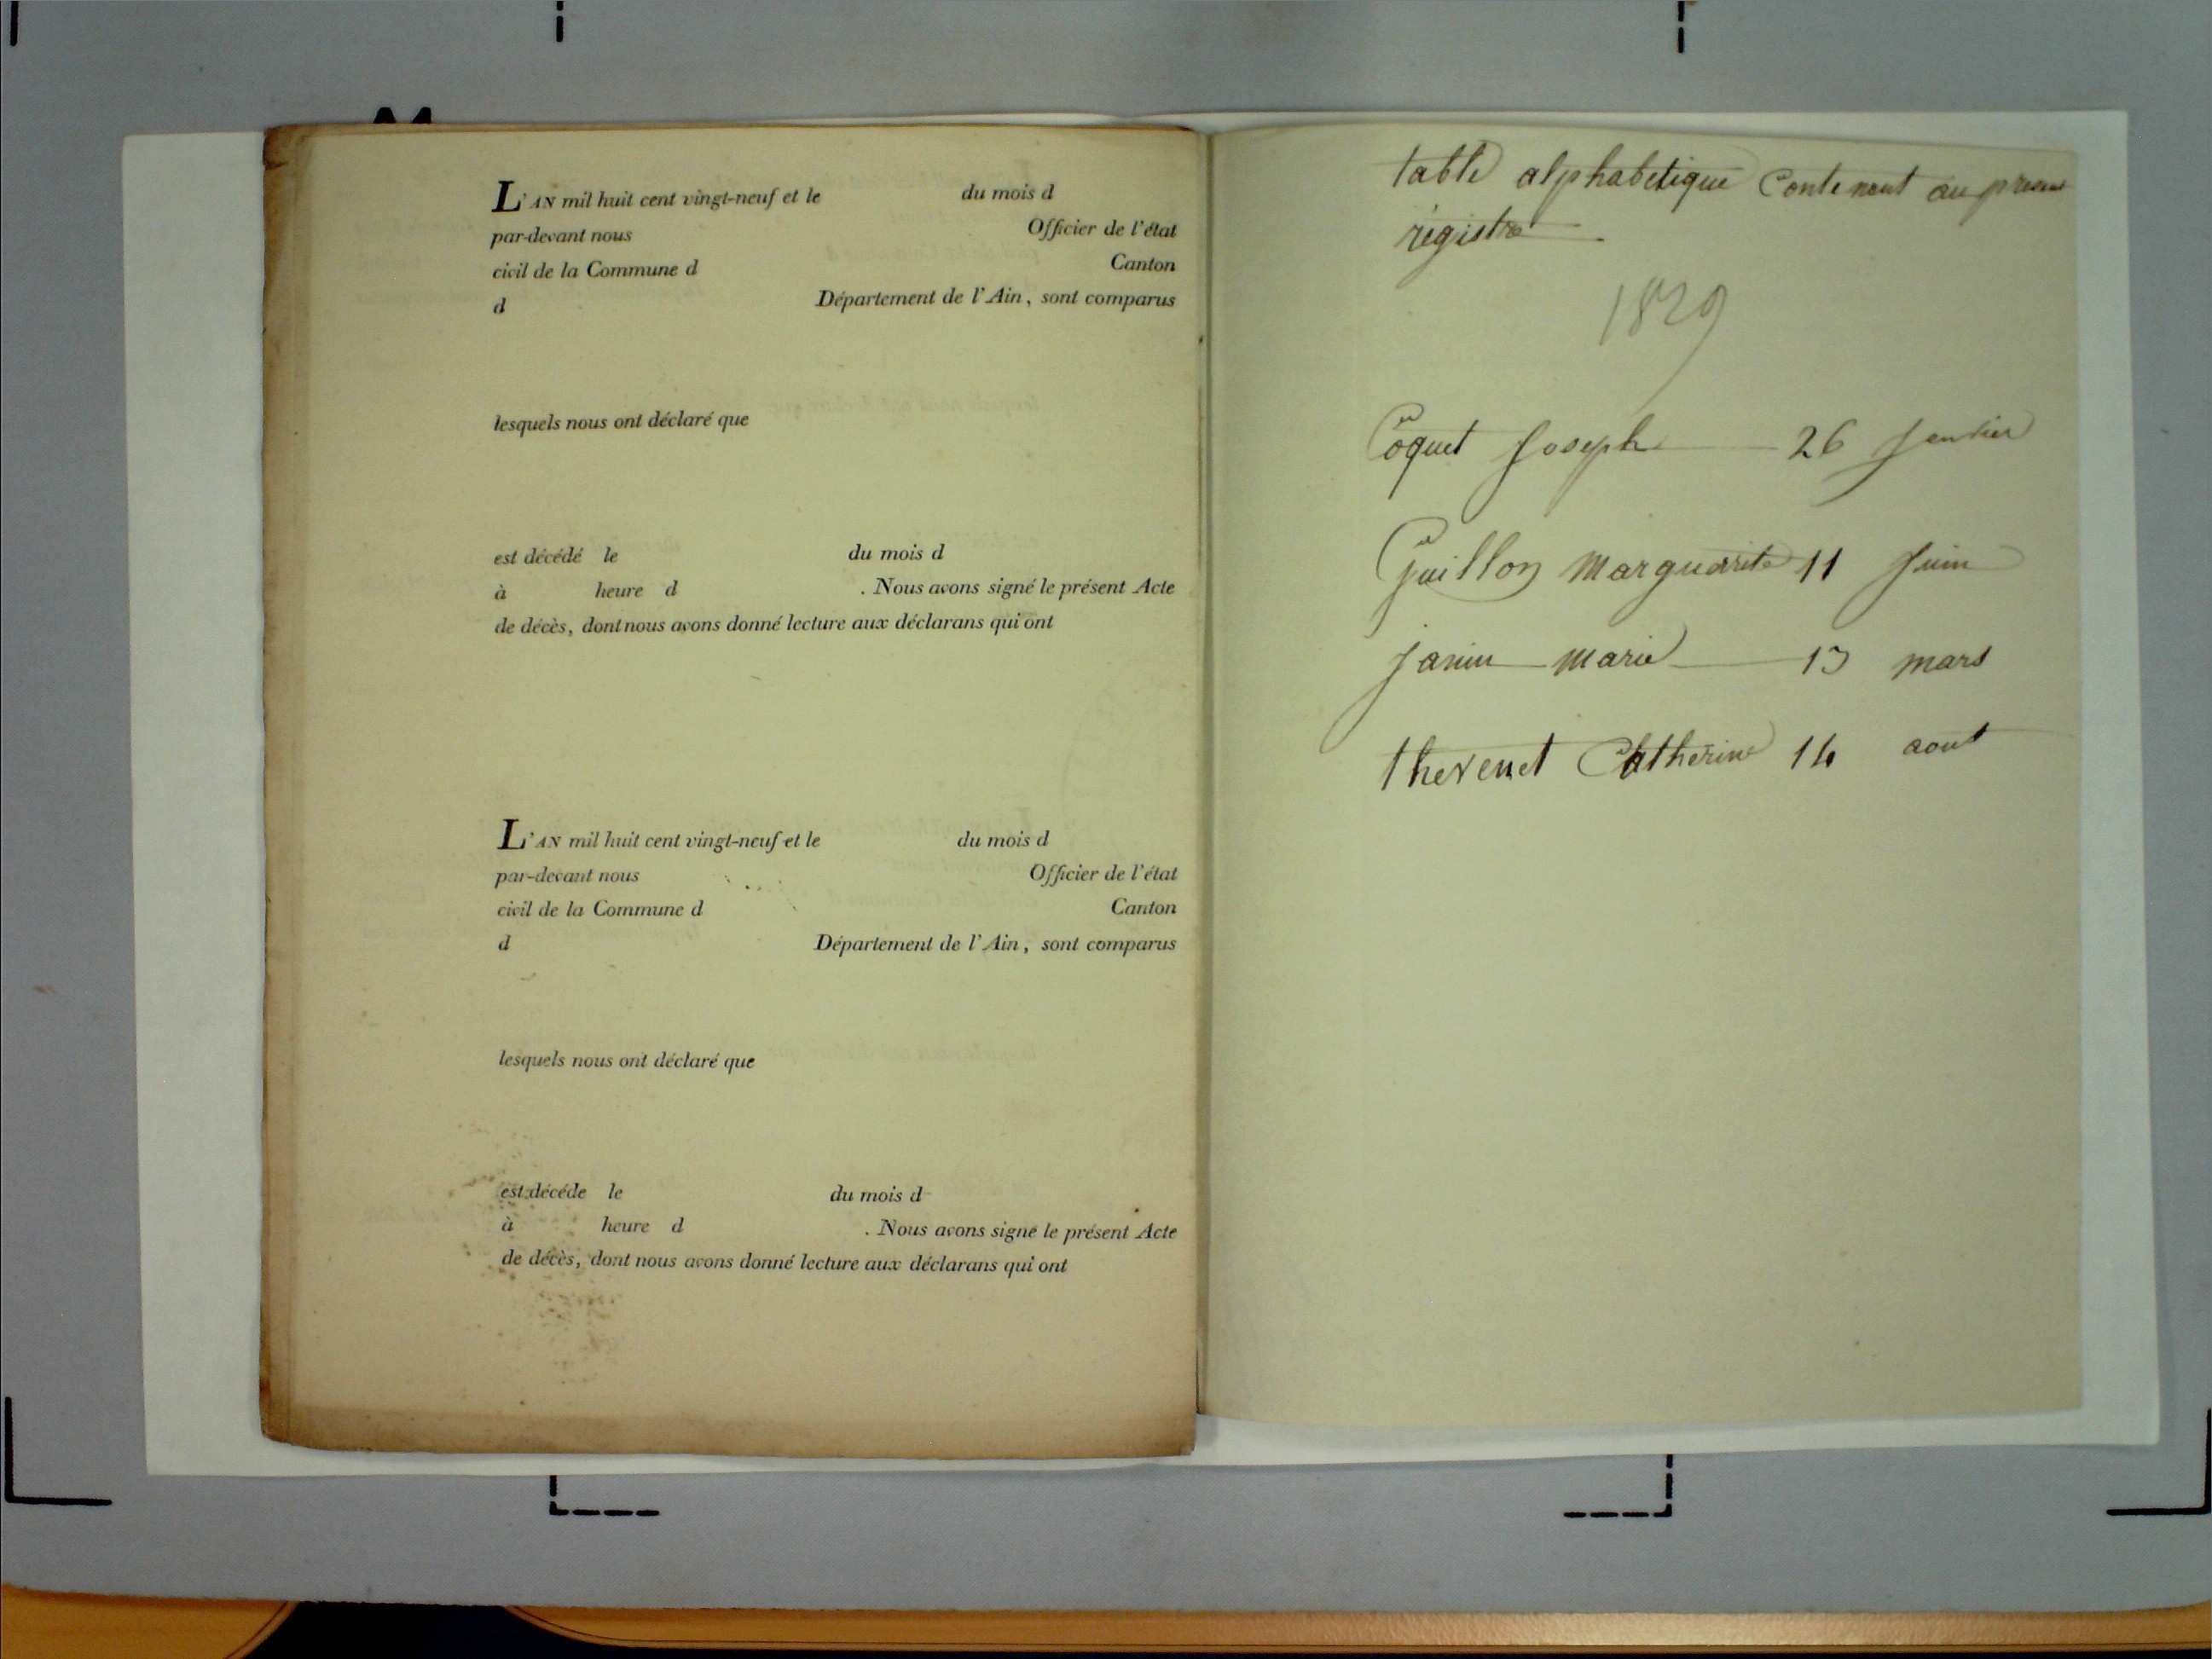 L'AN mil huit cent vingt-neuf et le du mois d
par-devant nous Officier de l'état
civil de la Commune d Canton
d Département de l'Ain, sont comparus
lesquels nous ont déclaré que
est décédé le du mois d
à heure d . Nous avons signé le présent Acte
de décès, dont nous avons donné lecture aux déclarans qui ont
L'AN mil huit cent vingt-neuf et le du mois d
par-devant nous Officier de l'état
civil de la Commune d Canton
d Département de l'Ain, sont comparus
lesquels nous ont déclaré que
est décéde le du mois d
à heure d . Nous avons signé le présent Acte
de décès, dont nous avons donné lecture aux déclarans qui ont
table alphabetique Contenent au present
régistre
1829
Coquet Joseph 26 Janvier
Guillon Marguerite 11 Juin
Janin marie 13 mars
thevenet Catherine 14 aout